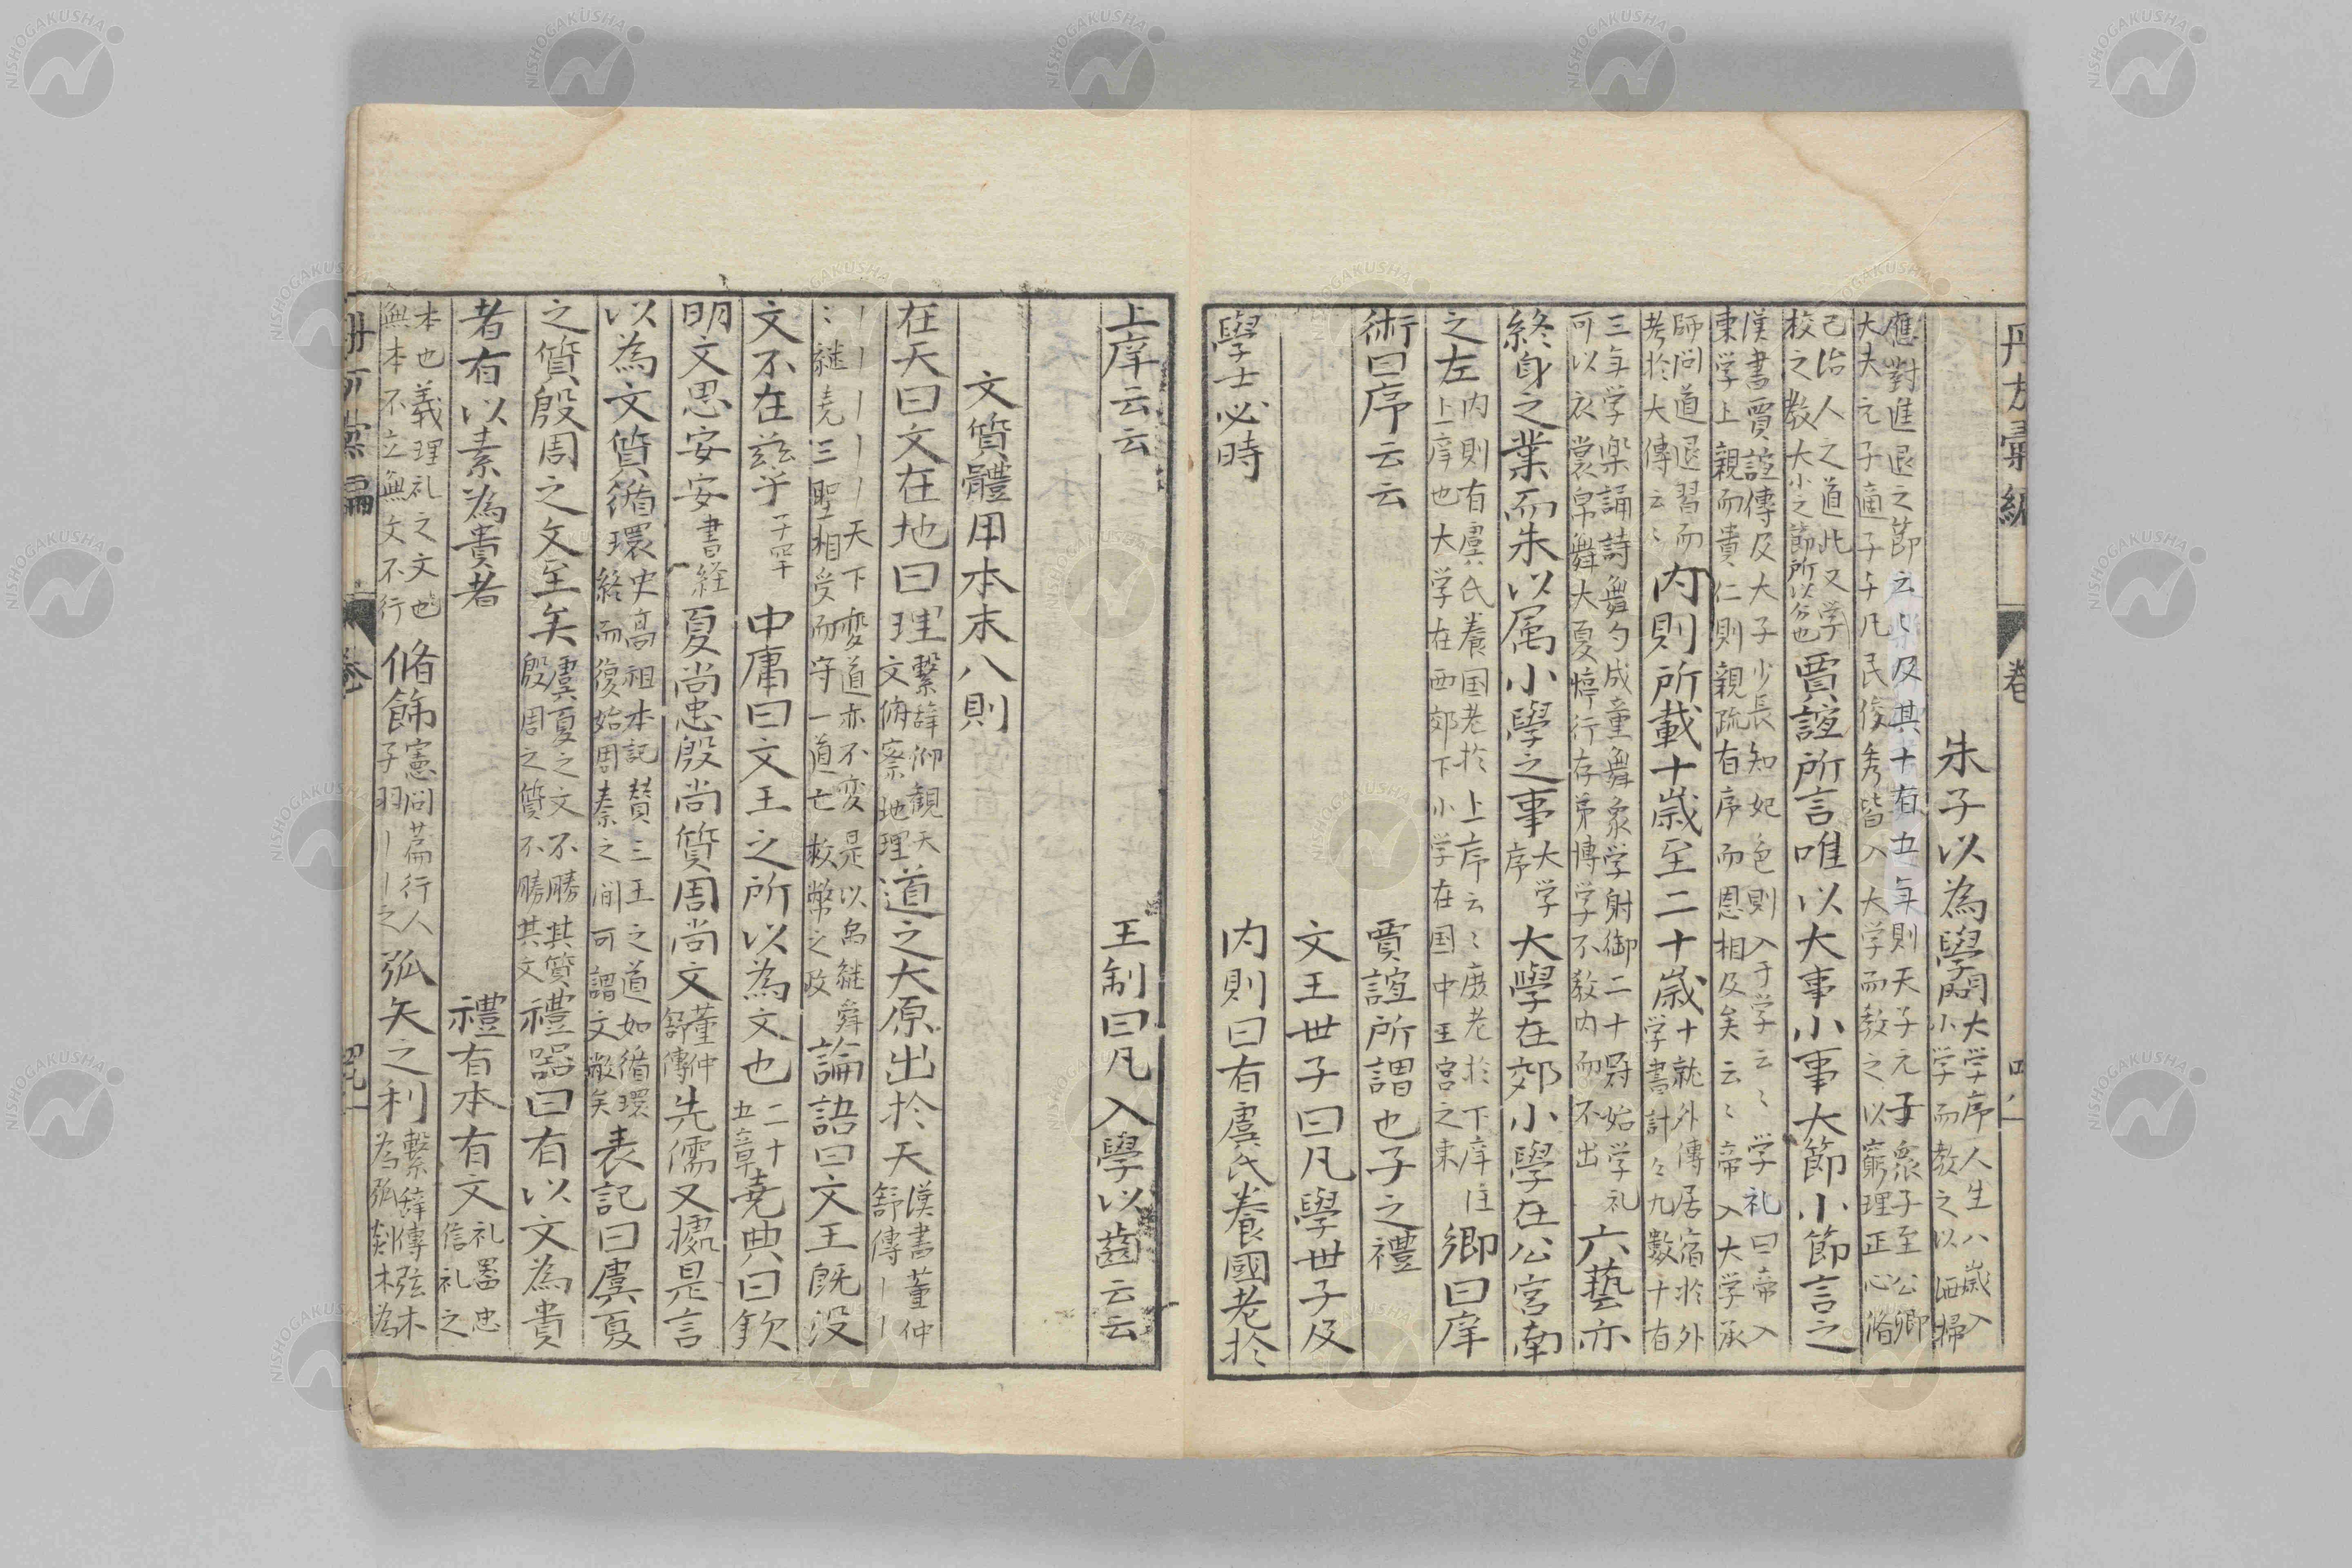 朱子以為學問大学序人生八歲入
小学而教之以洒掃
應對進退之節云楽及其十有五年則天子元子衆子至公卿
大夫元子適子与凡民俊秀皆入大学而教之以窮理正心脩
己治人之道此又学
校之教大小之節所以分也賈誼所言唯以大事小事大節小節言之
漢書賈誼傳及大子少長知妃色則入于学云〻学礼曰帝入
東学上親而貴仁則親疏有序而恩相及矣云〻帝入大学承
師问道退習而
考於大傳云〻内則所載十歲至二十歲十就外傳居宿於外
学書計〻九數十有
三年学楽誦詩舞勺成童舞象学射御二十冠始学礼
可以衣裳帛舞大夏惇行存弟博学不教内而不出六藝亦
終身之業而朱以属小學之事大学
序大學在郊小學在公宮南
之左内則有虞氏養国老於上序云〻庶老於下庠注
上庠也大学在西郊下小学在国中王宮之東鄉曰庠
術曰序云云賈誼所謂也子之禮
文王世子曰凡學世子及
學士必時内則曰有虞氏養國老於
上庠云云王制曰凡入學以齒云云
文質體用本末八則
在天曰文在地曰理繋辞仰観天
文俯察地理道之大原出於天漢書董仲
舒傳丨丨
丨丨丨丨丨天下変道亦不変是以禹継舜
〻継尭三聖相受而守一道亡救弊之政論語曰文王既没
文不在兹乎子罕中庸曰文王之所以為文也二十
五章堯典曰欽
明文思安安書経夏尚忠殷尚質周尚文董仲
舒傳先儒又據是言
以為文質循環史高祖本記賛三王之道如循環
終而復始周秦之间可謂文敝矣表記曰虞夏
之質殷周之文至矣虞夏之文不勝其質
殷周之質不勝其文禮器曰有以文為貴
者有以素為貴者禮有本有文礼器忠
信礼之
本也義理礼之文也
無本不立無文不行脩飾憲问篇行人
子羽丨丨之弧矢之利繋辞傳弦木
為弧剡木為